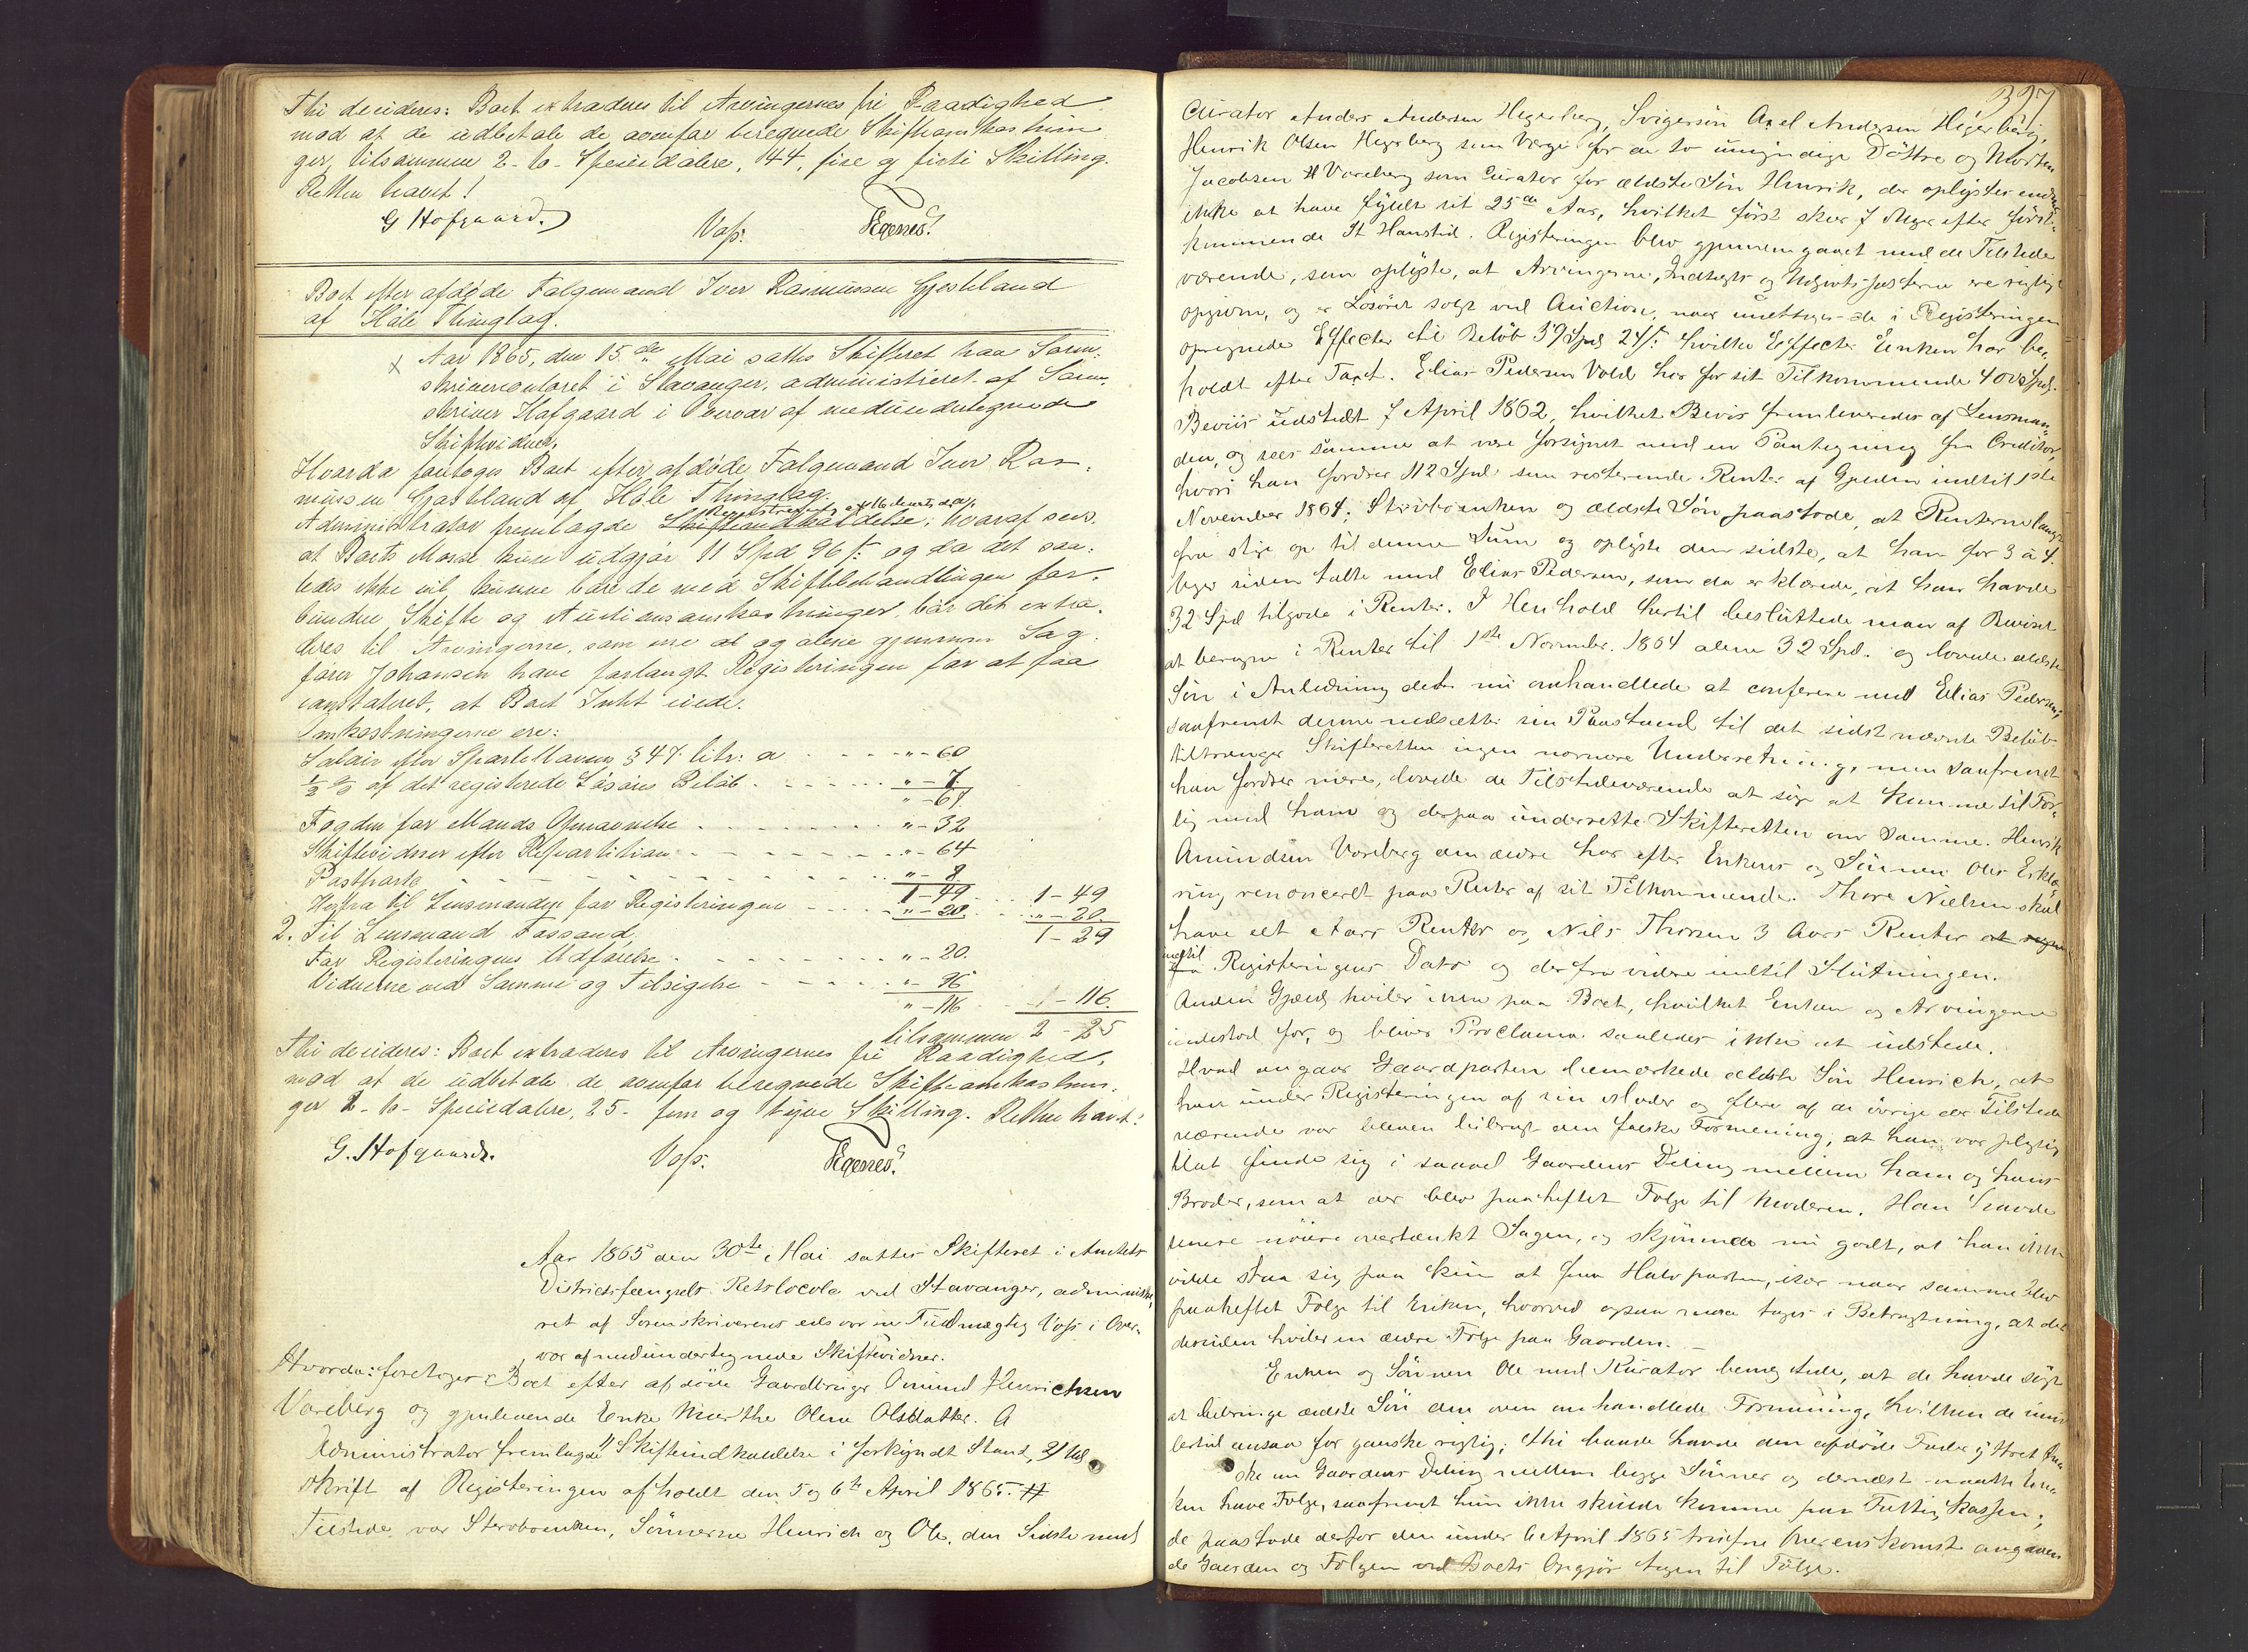 Thi decideres: Boet extraderes til Arvingernes fri Raadighed
mod at de udbetale de ovenfor beregnede Skifteomkostnin
ger, tilsammen 2 - to - Speciedalere, 44, fire og firti Skilling.
Retten hævet!
G Hofgaard. Voss: Egenes.
Boet efter afdøde Følgemand Iver Rasmussen Gjesteland
af Høle Thinglag.
Aar 1865, den 15de Mai sattes Skifteret paa Soren-
skrivercontoret i Stavanger, administreret af Soren-
skriver Hofgaard i Overvær af medundertegnede
Skiftevidner.
Hvorda foretoges Boet efter afdøde Følgemand Iver Ras-
mussen Gjesteland af Høle Thinglag.
Administrator fremlagde Skifteindkaldelse, hvoraf sees
at Boets Masse kun udgjør 11 Spd 96 s: og da det saa-
ledes ikke vil kunne bære de med Skiftebehandlingen for-
bundne Skifte og Auctionsomkostninger, bør det extra-
deres til Arvingerne, som ene al og alene gjennem Sag-
fører Johansen have forlangt Registeringen for at faa
constateret, at Boet Intet eiede.
Omkostningerne ere:
Salair efter Sportelloven § 47 litr: a - - - " - 60
½ % af det registerede Løsøres Beløb - - - " - 7
" - 67
Fogden for Mands Opnævnelse - - - " - 32
Skiftevidner efter Repartition - - - " - 64
Postporto - - - " - 8
1 - 49 1 - 49
Herfra til Lensmanden for Registeringen - - - " - 20 " - 20
1 - 29
2. Til Lensmand Tassand
For Registeringens Udførelse - - - " - 20
Vidnerne ved Samme og Tilsigelse - - - " - 96
" - 116 " - 116
tilsammen 2 - 25
Thi decideres: Boet extraderes til Arvingernes fri Raadighed,
mod at de udbetale de ovenfor beregnede Skifteomkostnin-
ger 2 - to - Speciedalere, 25 - fem og tyve Skilling. Retten hævet!
G. Hofgaard. Voss. Egenes.
Aar 1865 den 30te Mai sattes Skifteret i Amtets
Districtsfængsels Retslocale ved Stavanger, administre-
ret af Sorenskriverens edsvorne Fuldmægtig Voss i Over-
vær af medundertegnede Skiftevidner.
Hvorda: foretoges Boet efter afdøde Gaardbruger Omund Henrichsen
Voreberg og gjenlevende Enke Marthe Olene Olsdatter.
Administrator fremlagde 1) Skifteindkaldelse i forkyndt Stand, 2) Ud
skrift af Registeringen afholdt den 5 og 6te April 1865.
Tilstede var Stervboenken, Sønnerne Henrich og Ole, den Sidste med
397
Curator Anders Andersen Hegerberg, Svigersøn Axel Andersen Hegerberg,
Henrik Olsen Hegerberg som Verge for de to umyndige Døttre og Morten
Jacobsen Voreberg som Curator for ældste Søn Henrik, der oplyster endnu
ikke at have fyldt sit 25de Aar, hvilket først sker 7 Uger efter først-
kommende St Hanstid. Registeringen blev gjennemgaaet med de Tilstede
værende, som oplyste, at Arvingerne, Indtægts og Udgivtsposterne ere rigtigt
opgivne, og er Løsøret solgt ved Auction, naar undtages de i Registeringen
opregnede Effecter til Beløb 39 Spd 24 s: hvilke Effecter Enken har be-
holdt efter Taxt. Elias Pedersen Vold har for sit Tilkommende 400 Spd.
Beviis udstedt 7 April 1862, hvilket Bevis fremleveredes af Lensman-
den, og sees samme at være forsynet med en Paategning fra Creditor,
hvori han fordrer 112 Spd. som resterende Renter af Gjelden indtil 1ste
November 1864; Stervboenken og ældste Søn paastode, at Renterne langt
fra stige op til denne Sum og oplyste den sidste, at han for 3 à 4
Uger siden talte med Elias Pedersen, som da erklærede, at han havde
32 Spd tilgode i Renter. I Henhold hertil besluttede man af Beviset
at beregne i Renter til 1ste November 1864 alene 32 Spd. og lovede ældste
Søn i Anledning det nu omhandlede at conferere med Elias Pedersen;
saafremt denne nedsætter sin Paastand til det sidst nævnte Beløb
tiltrænger Skifteretten ingen nærmere Underretning, men saafremt
han fordrer mere, lovede de Tilstedeværende at søge at komme til For-
lig med ham og derpaa underrette Skifteretten om Samme. Henrik
Omundsen Voreberg den ældre har efter Enkens og Sønnen Oles Erklæ-
ring renonceret paa Renter af sit Tilkommende. Thore Nielsen skal
have et Aars Renter og Nils Thorsen 3 Aars Renter
indtil Registeringens Dato og derfra videre indtil Slutningen.
Anden Gjæld hviler ikke paa Boet, hvilket Enken og Arvingerne
indestod for, og bliver Proclama saaledes ikke at udstede.
Hvad angaar Gaardparten bemærkede ældste Søn Henrich, at
han under Registeringen af sin Moder og flere af de øvrige der Tilstede
værende var bleven bibragt den falske Formening, at han var pligtig
til at finde sig i saavel Gaardens Deling mellem ham og hans
Broder, som at der blev paaheftet Følge til Moderen. Han havde
senere nøiere overtænkt Sagen, og skjønnede nu godt, at han ikke
vilde staa sig paa kun at faa Halvparten, især naar samme blev
paaheftet Følge til Enken, hvorved ogsaa maa tages i Betragtning, at der
desuden hviler en ældre Følge paa Gaarden.
Enken og Sønnen Ole med Kurator benegtede, at de havde søgt
at bibringe ældste Søn den oven omhandlede Formening, hvilken de imid
lertid ansaa for ganske rigtig; thi baade havde den afdøde Fader yttret Øn-
ske om Gaardens Deling mellem begge Sønner og dernæst maatte En-
ken have Følge, saafremt hun ikke skulde komme paa Fattigkassen;
de paastode derfor den under 6 April 1865 trufne Overenskomst angaaen
de Gaarden og Følgen ved Boets Opgjør tagen til Følge.